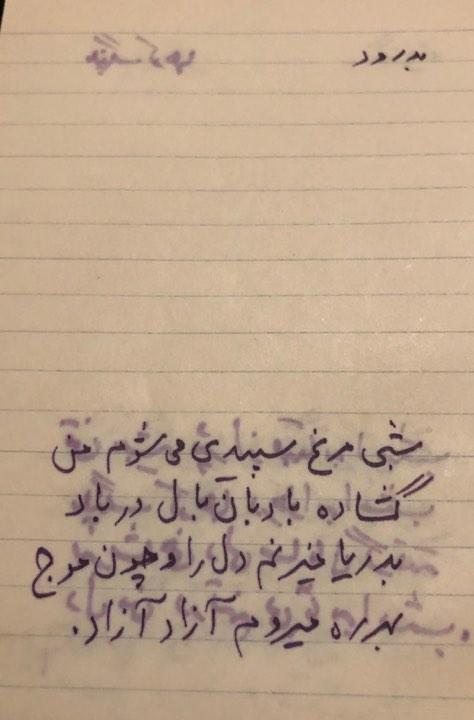 بدرود
شبی مرغ سپیدی می‌شوم من
گشاده بادبان بال در باد
بدریا میزنم دل را و چون موج
بهر ره میروم آزاد آزاد.